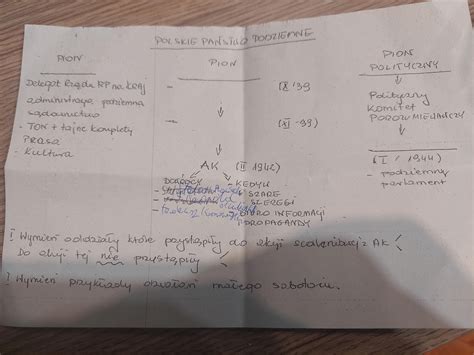 POLSKIE PAŃSTWO PODZIEMNE
PION
Delegat Rządu RP na Kraj
administracja podziemna
sądownictwo
- TON + tajne komplety
PRASA
- Kultura
PION
- (IX '39
- (XI -39)
AK (II 1942)
DOWÓDCY
KEDYW
SZARE
SZEREGI
BIURO INFORMACJI
PROPAGANDY
PION
POLITYCZNY
Polityczny
Komitet
POROZUMIEWAWCZY
(I / 1944)
- podziemny
parlament
! Wymień oddziały które przystąpiły do akcji scaleniowej z AK
Do akcji tej nie przystąpiły
! Wymień przykłady działań małego sabotażu.